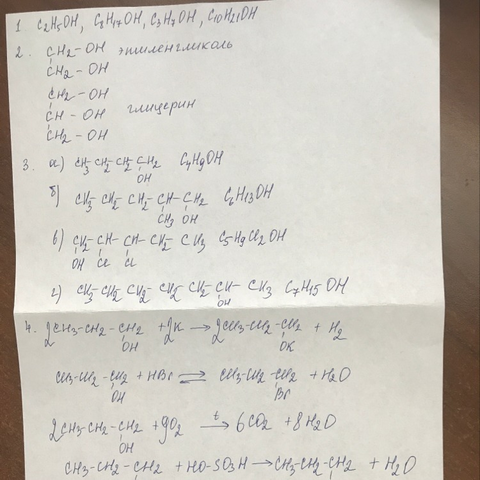 1. C2H5OH, C8H17OH, C3H7OH, C10H21OH
2. CH2-OH этиленгликоль
CH2-OH
CH2-OH
CH-OH глицерин
CH2-OH
3. а) CH3-CH2-CH2-CH2 C4H9OH
OH
б) CH3-CH2-CH2-CH-CH2 C6H13OH
CH3 OH
в) CH2-CH-CH-CH2-CH3 C5H9Cl2OH
OH Cl Cl
г) CH3-CH2-CH2-CH2-CH2-CH-CH3 C7H15OH
OH
4. 2CH3-CH2-CH2 + 2K → 2CH3-CH2-CH2 + H2
OH OK
CH3-CH2-CH2 + HBr ⇌ CH3-CH2-CH2 + H2O
OH Br
2CH3-CH2-CH2 + 9O2 t→ 6CO2 + 8H2O
OH
CH3-CH2-CH2 + HO-SO3H → CH3-CH2-CH2 + H2O